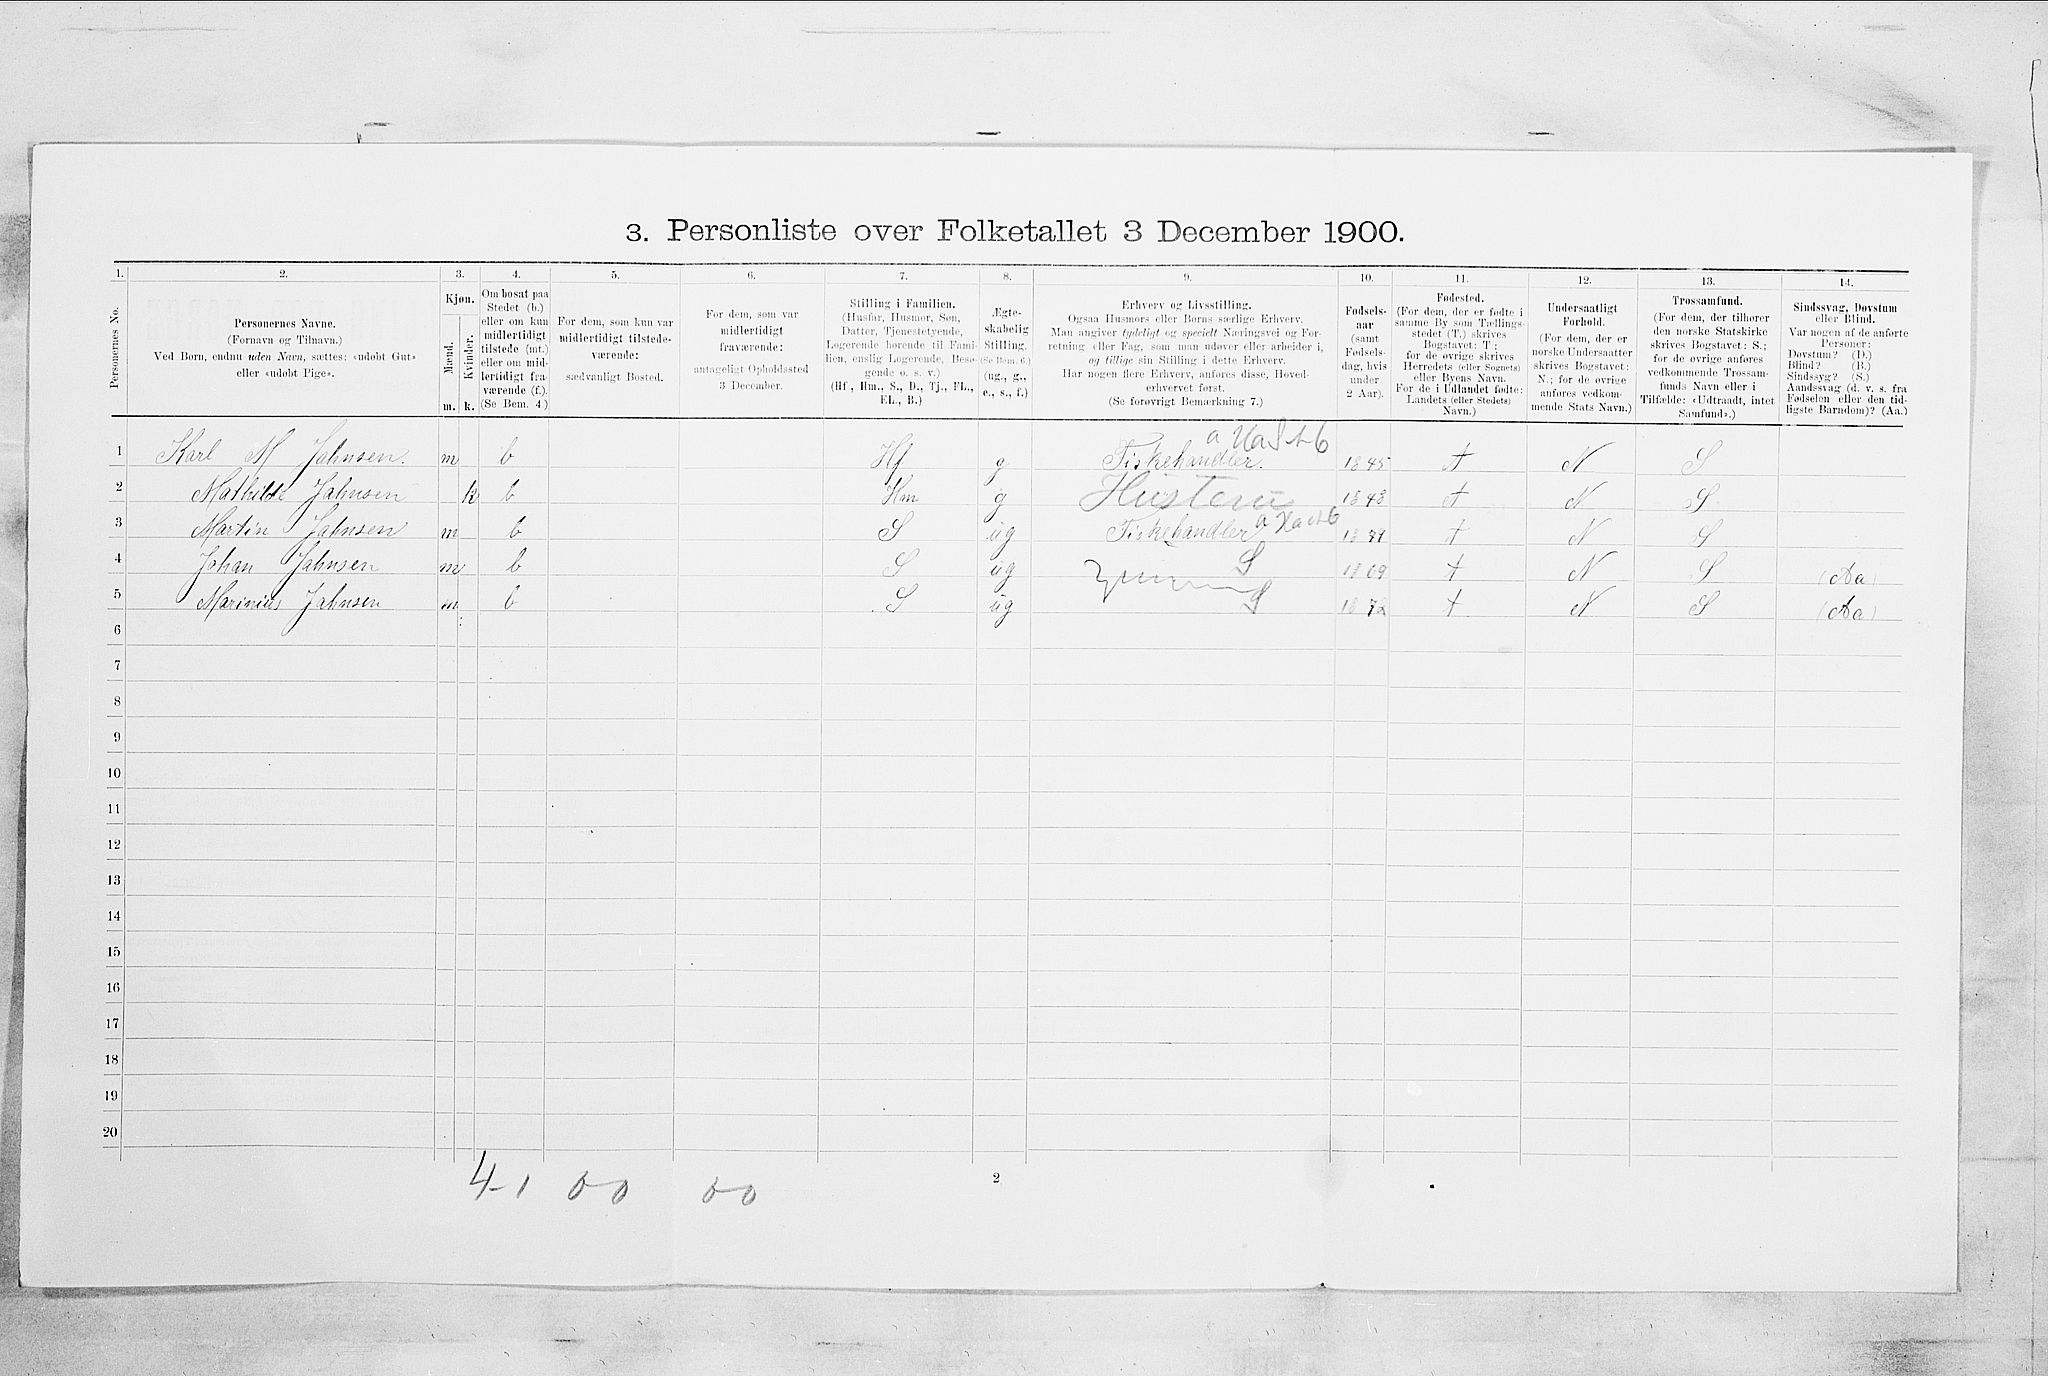 3. Personliste over Folketallet 3 December 1900.
1. 2. 3. 4. 5. 6. 7. 8. 9. 10. 11. 12. 13. 14.
Personernes No.
Personernes Navne.
(Fornavn og Tilnavn.)
Ved Børn, endnu uden Navn, sættes: «udøbt Gut»
eller «udøbt Pige».
Kjøn.
Mænd.
Kvinder.
m. k.
Om bosat paa
Stedet (b.)
eller om kun
midlertidigt
tilstede (mt.)
eller om mid-
lertidigt fra-
værende (f.).
(Se Bem. 4.)
For dem, som kun var
midlertidigt tilstede-
værende:
sædvanligt Bosted.
For dem, som var
midlertidigt
fraværende:
antageligt Opholdssted
3 December.
Stilling i Familien.
(Husfar, Husmor, Søn,
Datter, Tjenestetyende,
Logerende hørende til Fami-
lien, enslig Logerende, Besø-
gende o. s. v.)
(Hf., Hm., S., D., Tj., FL.,
EL., B.)
Ægte-
skabelig
Stilling.
(Se Bem. 6.)
(ug., g.,
e., s., f.)
Erhverv og Livsstilling.
Ogsaa Husmors eller Børns særlige Erhverv.
Man angiver tydeligt og specielt Næringsvei og For-
retning eller Fag, som man udøver eller arbeider i,
og tillige sin Stilling i dette Erhverv.
Har nogen flere Erhverv, anføres disse, Hoved-
erhvervet først.
(Se forøvrigt Bemærkning 7.)
Fødsels-
aar
(samt
Fødsels-
dag, hvis
under
2 Aar).
Fødested.
(For dem, der er fødte i
samme By som Tællings-
stedet (T.) skrives
Bogstavet: T.;
for de øvrige skrives
Herredets (eller Sognets)
eller Byens Navn.
For de i Udlandet fødte:
Landets (eller Stedets)
Navn.)
Undersaatligt
Forhold.
(For dem, der er
norske Undersaatter
skrives Bogstavet:
N.; for de øvrige
anføres vedkom-
mende Stats Navn.)
Trossamfund.
(For dem, der tilhører
den norske Statskirke
skrives Bogstavet: S.;
for de øvrige anføres
vedkommende Trossam-
funds Navn eller i
Tilfælde: «Udtraadt, intet
Samfund».)
Sindssvag, Døvstum
eller Blind.
Var nogen af de anførte
Personer:
Døvstum? (D.)
Blind? (B.)
Sindssyg? (S.)
Aandssvag (d. v. s. fra
Fødselen eller den tid-
ligste Barndom)? (Aa.)
1 Karl M Jahnsen. m b Hf g Fiskehandler. 1845 N S
2 Mathilde Jahnsen k b Hm g 1848 N S
3 Martin Jahnsen m b S ug Fiskehandler N S
4 Johan Jahnsen m b S ug S 1869 N S (Aa)
5 Marinius Jahnsen m b S ug S 1872 N S (Aa)
6
7
8
9
10
11
12
13
14
15
16
17
18
19
20
4-1 0-0 0-0
2